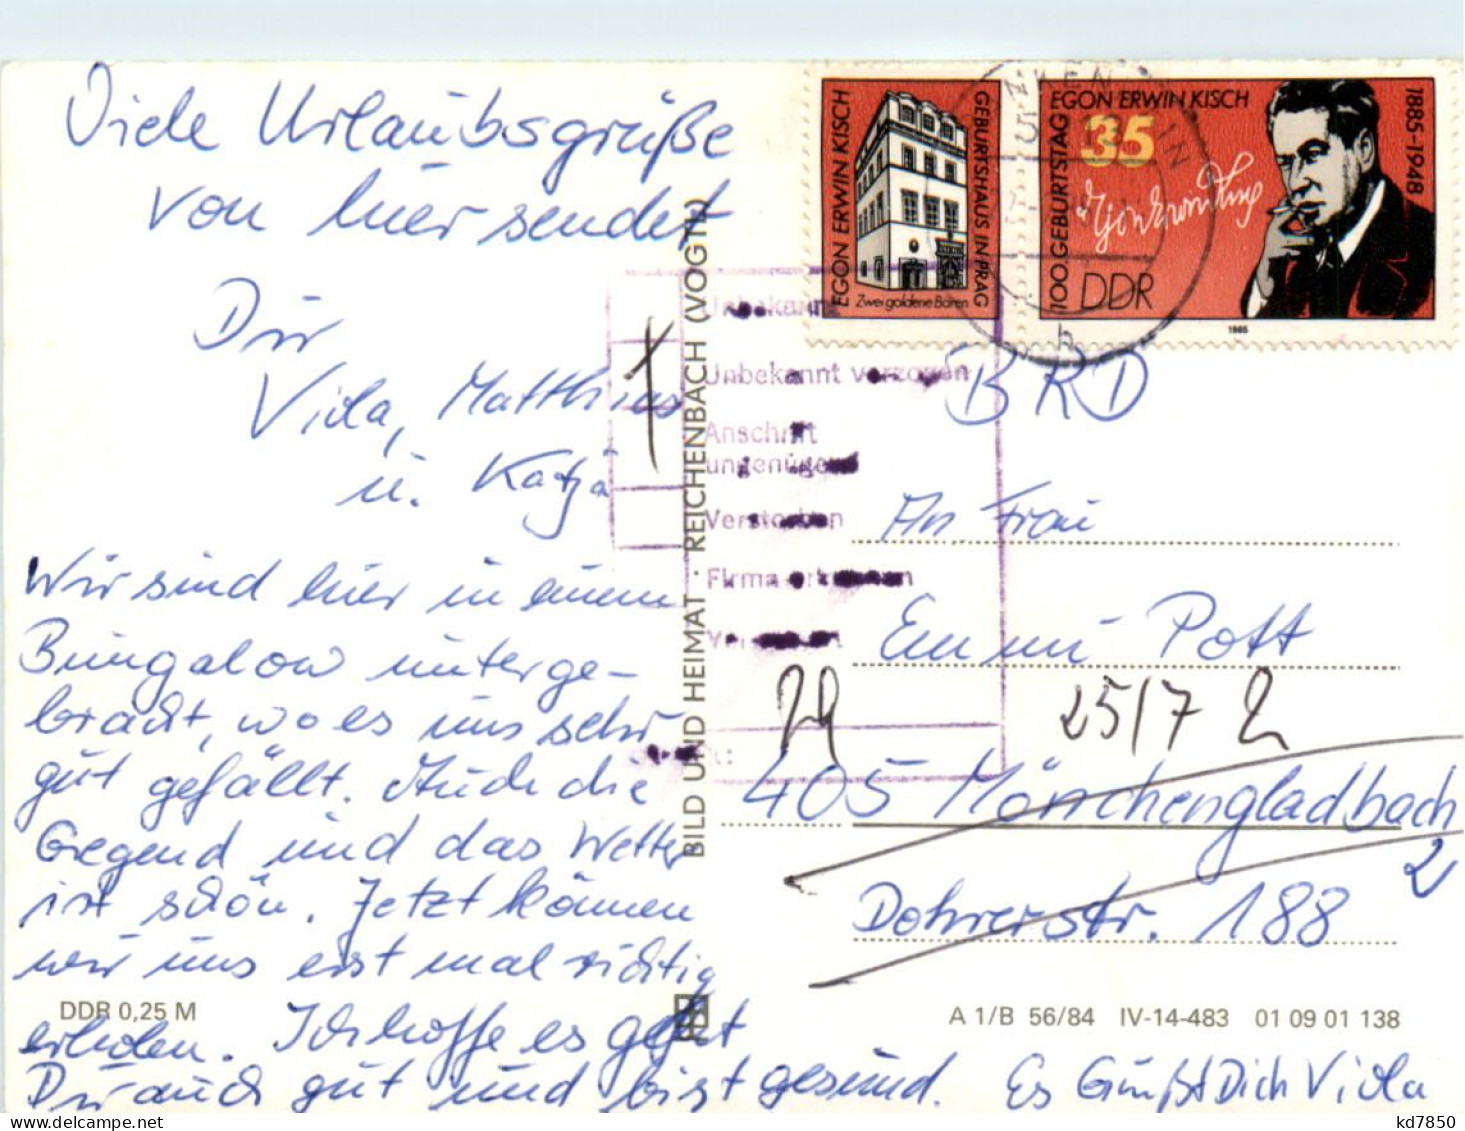 Viele Urlaubsgrüße
von hier sendet
Dir
Viola, Matthias
u. Katja
Wir sind hier in einem
Bungalow unterge-
bracht, wo es uns sehr
gut gefällt. Auch die
Gegend und das Wetter
ist schön. Jetzt können
wir uns erst mal richtig
erholen. Ich hoffe es geht
Dir auch gut und bist gesund. Es Grüßt Dich Viola
DDR 0,25 M
BILD UND HEIMAT · REICHENBACH (VOGTL)
EGON ERWIN KISCH
GEBURTSHAUS IN PRAG
Zwei goldene Bären
100. GEBURTSTAG
EGON ERWIN KISCH
1885-1948
35
DDR
1985
Unbekannt
Unbekannt verzogen
Anschrift
ungenügend
Verstorben
Firma erloschen
BRD
An Frau
Emmi Pott
25/7
405 Mönchengladbach
2
Dohrerstr. 188
A 1/B 56/84 IV-14-483 01 09 01 138
kd7850
www.delcampe.net